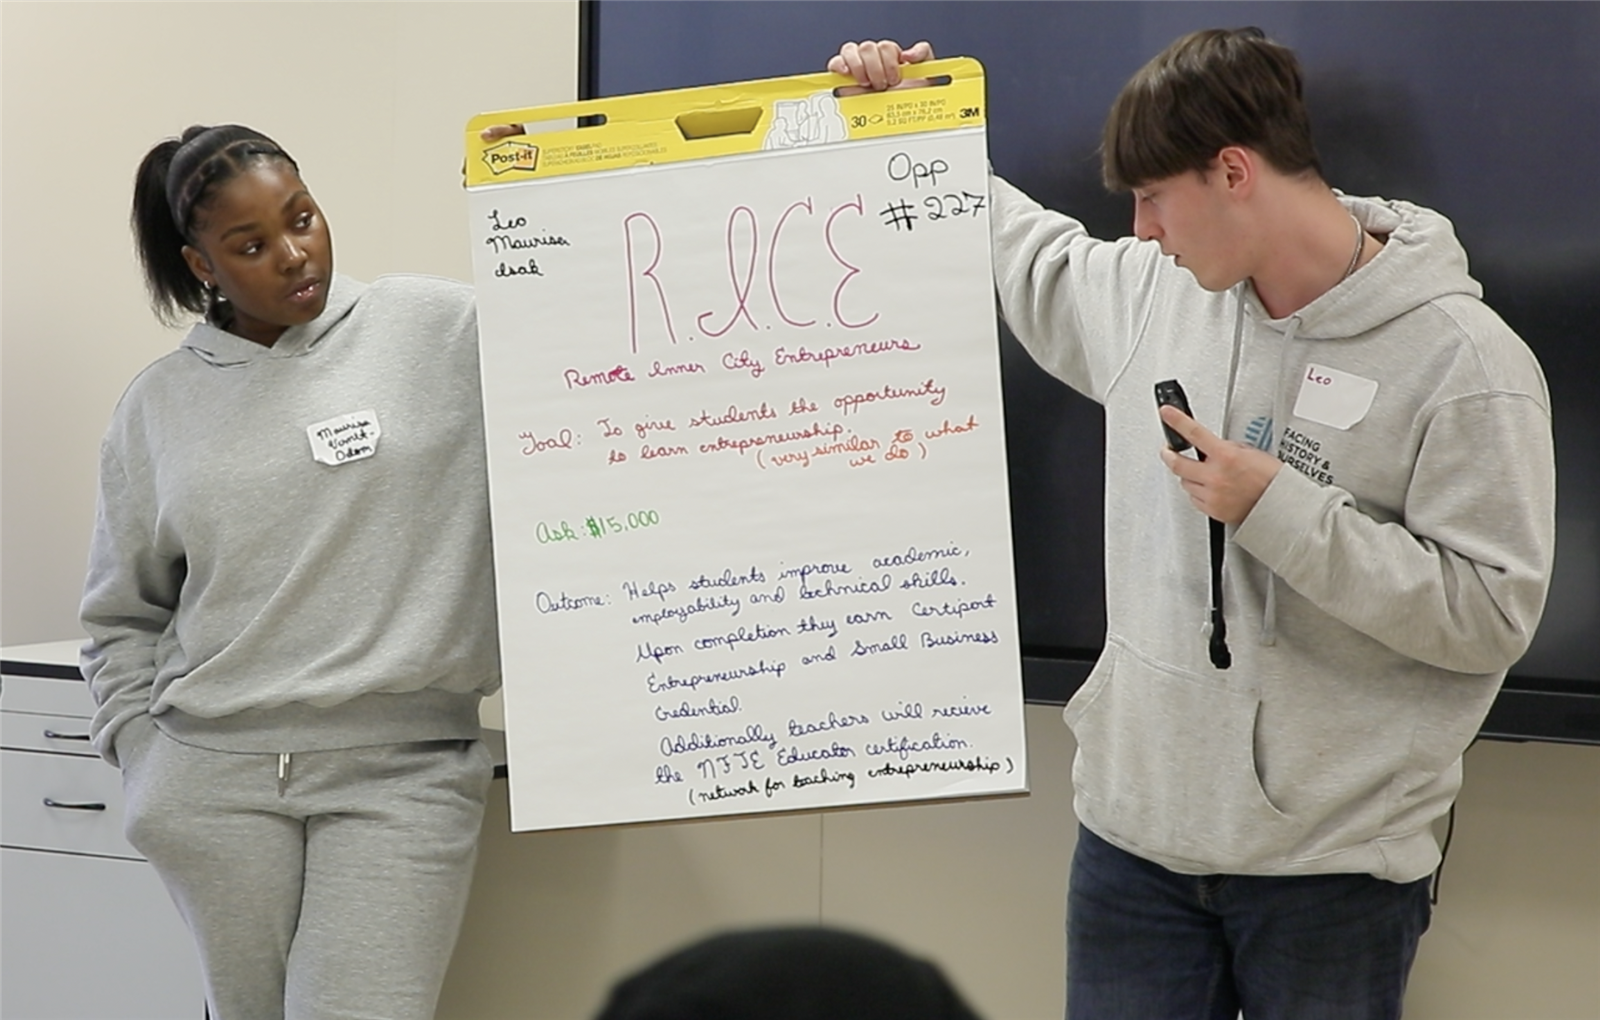 Post-it
30
3M
Opp
#227
Leo
Maurisa
Isak
R.I.C.E
Remote Inner City Entrepreneurs
Goal: To give students the opportunity
to learn entrepreneurship.
(very similar to what
we do)
Ask: $15,000
Outcome: Helps students improve academic,
employability and technical skills.
Upon completion they earn Certiport
Entrepreneurship and Small Business
Credential.
Additionally teachers will recieve
the NFTE Educator certification.
(network for teaching entrepreneurship)
Maurisa
Odom
Leo
FACING
HISTORY &
OURSELVES